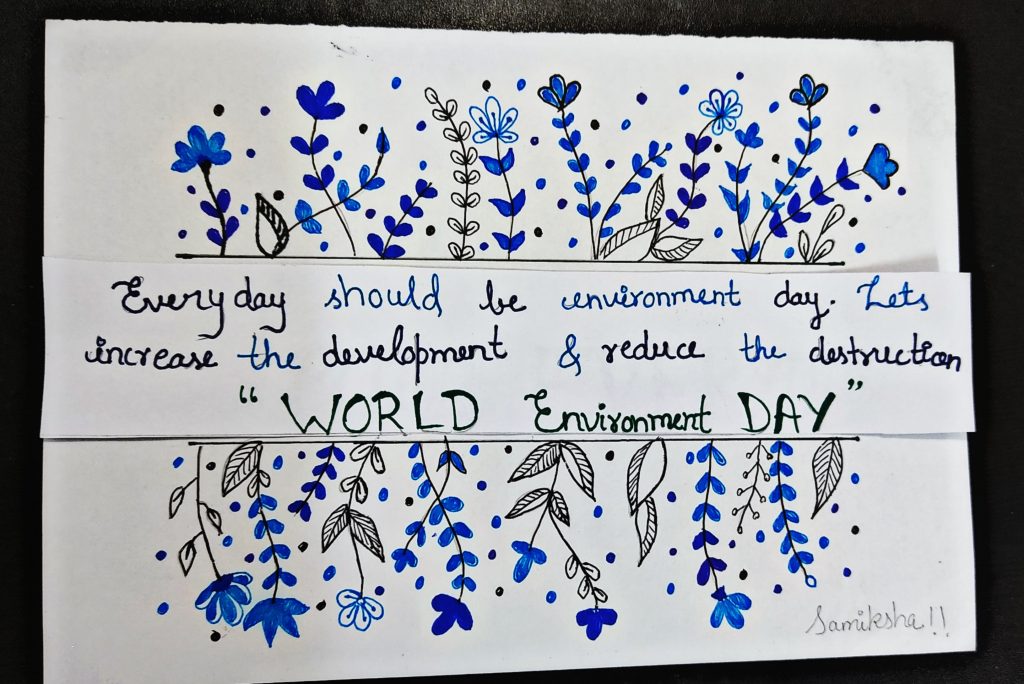 Every day should be environment day. Lets
increase the development & reduce the destruction
“WORLD Environment DAY”
Samiksha!!